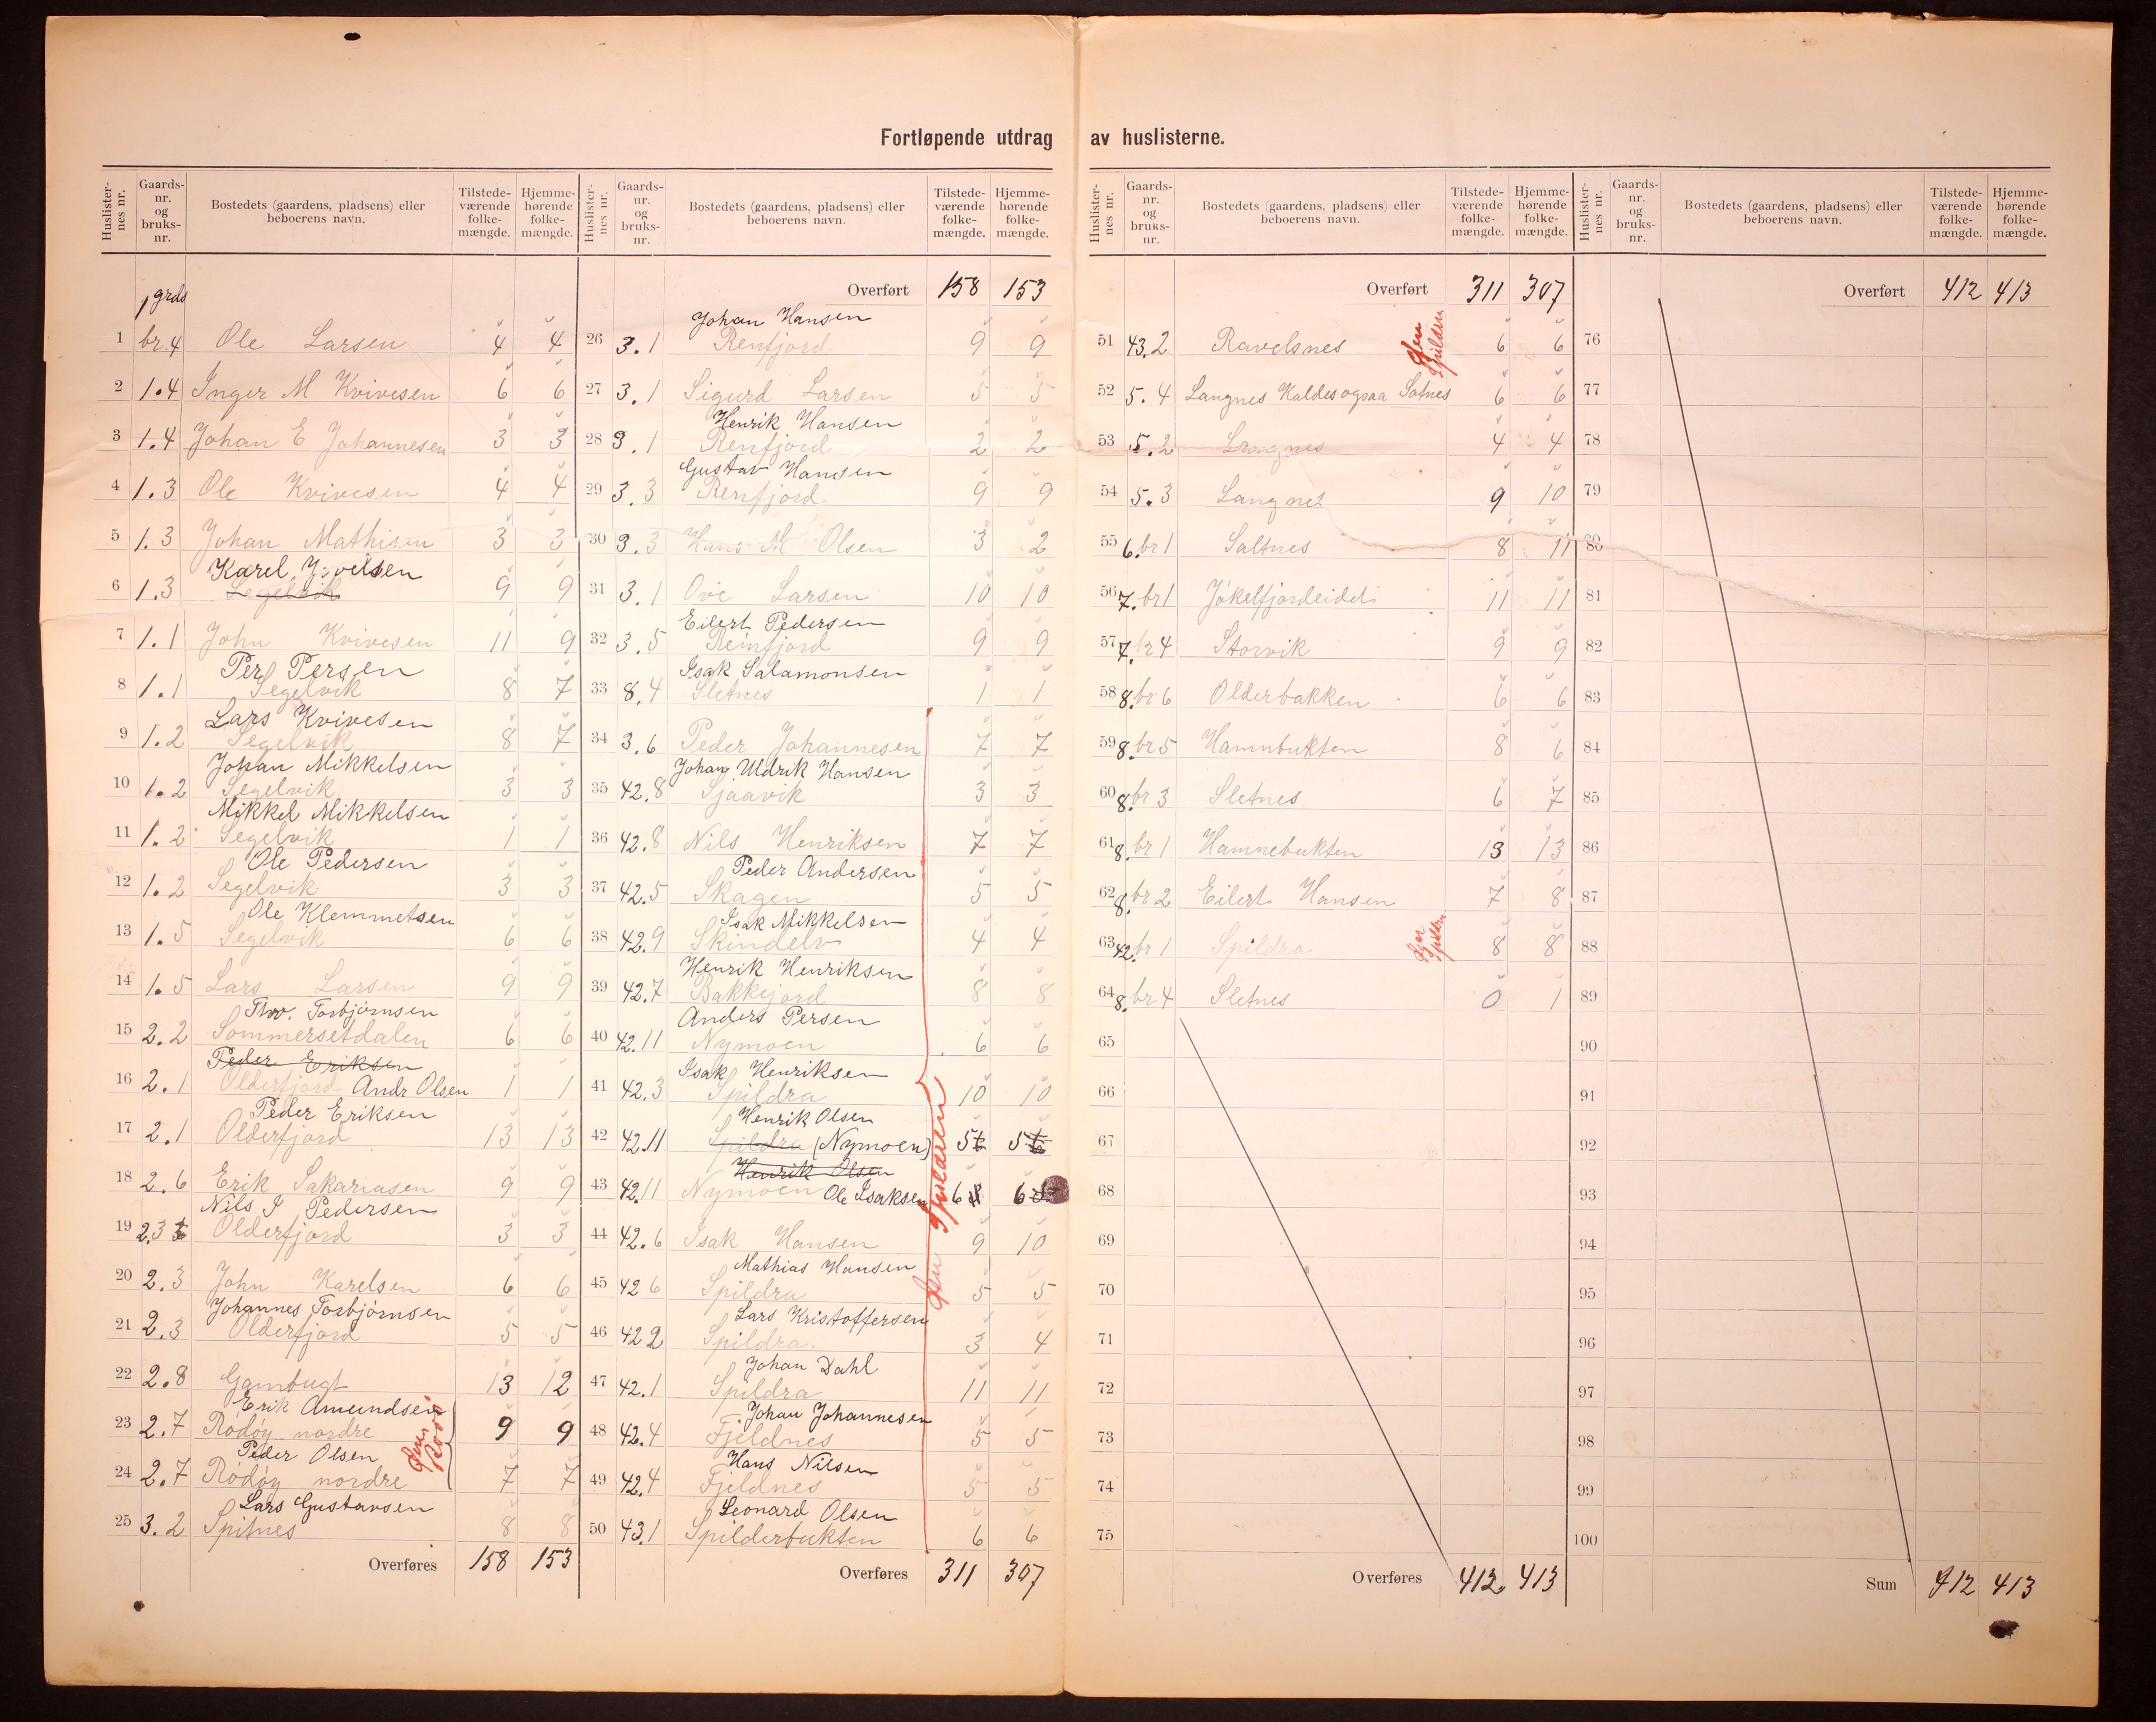 Fortløpende utdrag av huslisterne.
Huslister-nes nr. | Gaards-nr. og bruks-nr. | Bostedets (gaardens, pladsens) eller beboerens navn. | Tilstede-værende folke-mængde. | Hjemme-hørende folke-mængde.
1 grds
1 br. 4 Ole Larsen 4 4
2 1.4 Inger M Kvivesen 6 6
3 1.4 Johan E Johannesen 3 3
4 1.3 Ole Kvivesen 4 4
5 1.3 Johan Mathisen 3 3
Karel
6 1.3 Segelvik 9 9
7 1.1 John Kvivesen 11 9
Per Persen
8 1.1 Segelvik 8 7
Lars Kvivesen
9 1.2 Segelvik 8 7
Johan Mikkelsen
10 1.2 Segelvik 3 3
Mikkel Mikkelsen
11 1.2 Segelvik 1 1
Ole Pedersen
12 1.2 Segelvik 3 3
Ole Klemmetsen
13 1.5 Segelvik 6 6
14 1.5 Lars Larsen 9 9
Thor. Torbjørnsen
15 2.2 Sommersetdalen 6 6
Peder Eriksen
16 2.1 Olderfjord Andr Olsen 1 1
Peder Eriksen
17 2.1 Olderfjord 13 13
18 2.6 Erik Sakariasen 9 9
Nils J Pedersen
19 2.3 Olderfjord 3 3
20 2.3 John Karelsen 6 6
Johannes Torbjørnsen
21 2.3 Olderfjord 5 5
22 2.8 Gambugt 13 12
Erik Amundsen
23 2.7 Rödöy nordre 9 9
Peder Olsen
24 2.7 Rödöy nordre 7 7
Lars Gustavsen
25 3.2 Spitnes 8 8
Overføres 158 153
Huslister-nes nr. | Gaards-nr. og bruks-nr. | Bostedets (gaardens, pladsens) eller beboerens navn. | Tilstede-værende folke-mængde. | Hjemme-hørende folke-mængde.
Overført 158 153
Johan Hansen
26 3.1 Renfjord 9 9
27 3.1 Sigurd Larsen 5 5
Henrik Hansen
28 3.1 Renfjord 2 2
Gustav Hansen
29 3.3 Renfjord 9 9
30 3.3 Hans M Olsen 3 2
31 3.1 Ove Larsen 10 10
Eilert Pedersen
32 3.5 Reinfjord 9 9
Isak Salamonsen
33 8.4 Sletnes 1 1
34 3.6 Peder Johannesen 7 7
Johan Uldrik Hansen
35 42.8 Sjaavik 3 3
36 42.8 Nils Henriksen 7 7
Peder Andersen
37 42.5 Skagen 5 5
Isak Mikkelsen
38 42.9 Skindelv 4 4
Henrik Henriksen
39 42.7 Bakkejord 8 8
Anders Persen
40 42.11 Nymoen 6 6
Isak Henriksen
41 42.3 Spildra 10 10
Henrik Olsen
42 42.11 Spildra (Nymoen) 5 5
Henrik Olsen
43 42.11 Nymoen Ole Isaksen 6 6
44 42.6 Isak Hansen 9 10
Mathias Hansen
45 42 6 Spildra 5 5
Lars Kristoffersen
46 42 2 Spildra 3 4
Johan Dahl
47 42.1 Spildra 11 11
Johan Johannesen
48 42.4 Fjeldnes 5 5
Hans Nilsen
49 42.4 Fjeldnes 5 5
Leonard Olsen
50 43.1 Spilderbukten 6 6
Overføres 311 307
Øen Spildren
Huslister-nes nr. | Gaards-nr. og bruks-nr. | Bostedets (gaardens, pladsens) eller beboerens navn. | Tilstede-værende folke-mængde. | Hjemme-hørende folke-mængde.
Overført 311 307
51 43.2 Ravelsnes Øen Spildren 6 6
52 5.4 Langnes Kaldes ogsaa Sotnes 6 6
53 5.2 Langnes 4 4
54 5.3 Langnes 9 10
55 6. br 1 Saltnes 8 11
56 7. br 1 Jökelfjordeidet 11 11
57 7. br 4 Storvik 9 9
58 8. br 6 Olderbakken 6 6
59 8. br 5 Hamnbukten 8 6
60 8. br 3 Sletnes 6 7
61 8. br 1 Hamnebukten 13 13
62 8. br 2 Eilert Hansen 7 8
63 42. br 1 Spildra 8 8
64 8. br 4 Sletnes 0 1
65
66
67
68
69
70
71
72
73
74
75
Overføres 412 413
Huslister-nes nr. | Gaards-nr. og bruks-nr. | Bostedets (gaardens, pladsens) eller beboerens navn. | Tilstede-værende folke-mængde. | Hjemme-hørende folke-mængde.
Overført 412 413
76
77
78
79
80
81
82
83
84
85
86
87
88
89
90
91
92
93
94
95
96
97
98
99
100
Sum 412 413